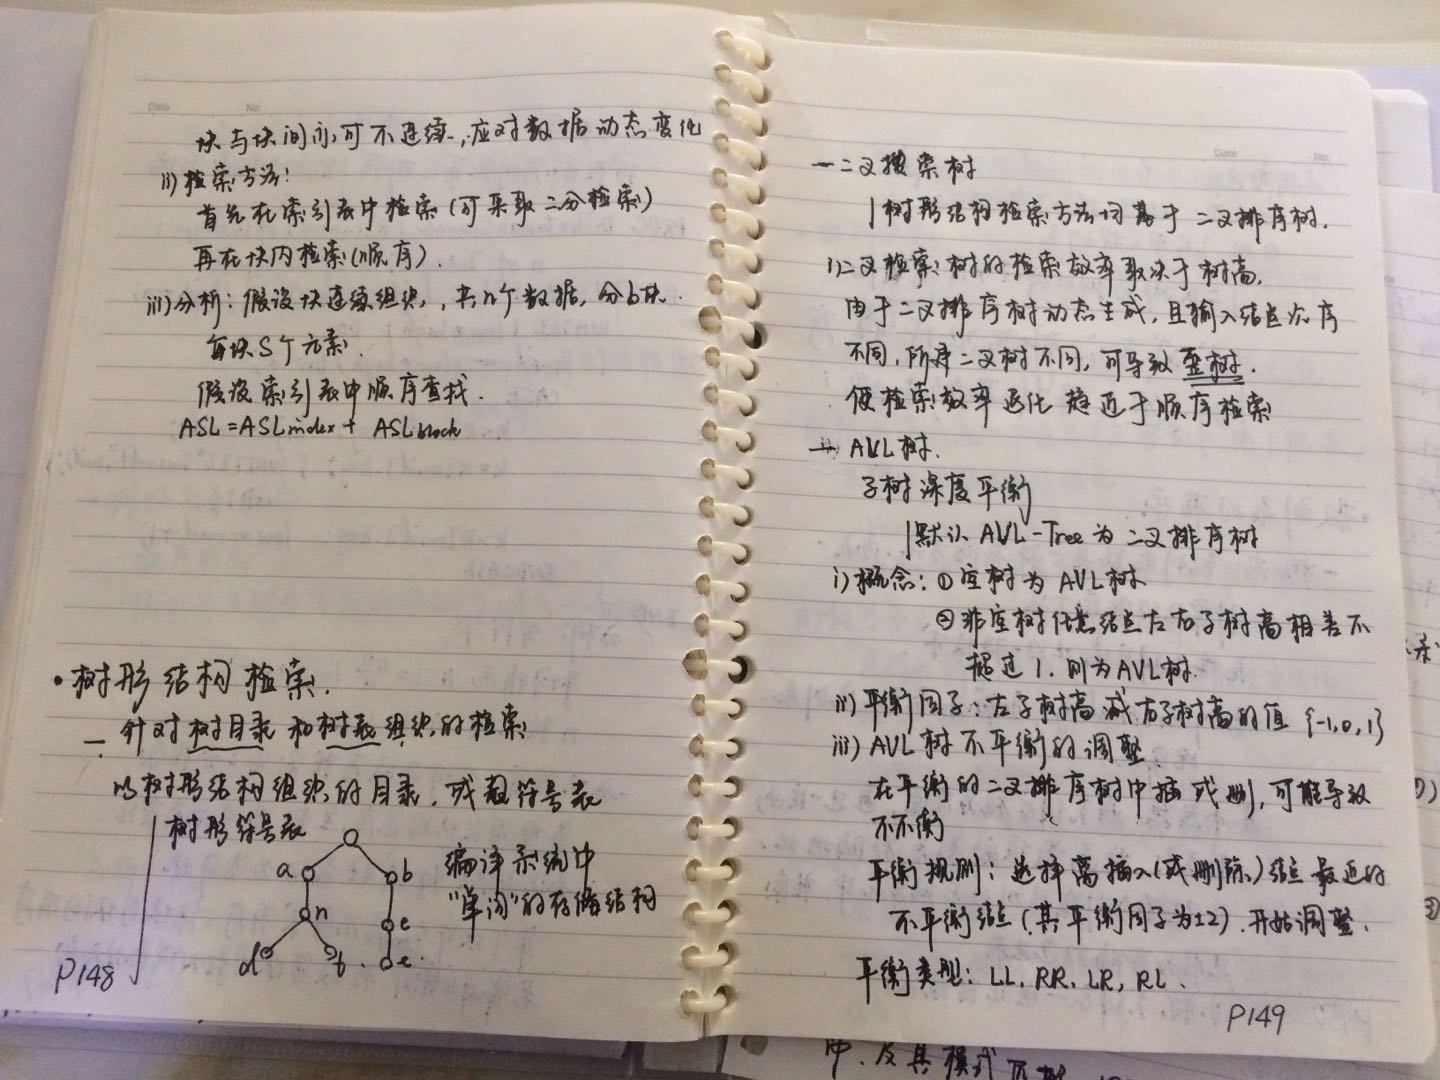 Date No.
块与块间亦可不连续，应对数据动态变化
ii) 检索方法：
首先在索引表中检索(可采取二分检索)
再在块内检索(顺序).
iii) 分析：假设块连续组织，共n个数据，分b块.
每块S个元素.
假设索引表中顺序查找.
ASL = ASLindex + ASLblock
• 树形结构检索.
— 针对树目录和树表组织的检索
以树形结构组织的目录，或者符号表
树形符号表
a b
编译系统中
n
"单词"的存储结构
e
d t e.
P148
Date No.
— 二叉搜索树
|树形结构检索方法均基于二叉排序树.
i) 二叉检索树的检索效率取决于树高.
由于二叉排序树动态生成，且输入结点次序
不同，所建二叉树不同，可导致歪树.
使检索效率退化趋近于顺序检索
— AVL树.
子树深度平衡
|默认AVL-Tree为二叉排序树
i) 概念：①空树为AVL树
②非空树任意结点左右子树高相差不
超过1.则为AVL树.
ii) 平衡因子：左子树高减右子树高的值 {-1,0,1}
iii) AVL树不平衡的调整.
在平衡的二叉排序树中插或删，可能导致
不平衡
平衡规则：选择离插入(或删除)结点最近的
不平衡结点(其平衡因子为±2).开始调整.
平衡类型：LL, RR, LR, RL.
P149
中、及其模式匹配